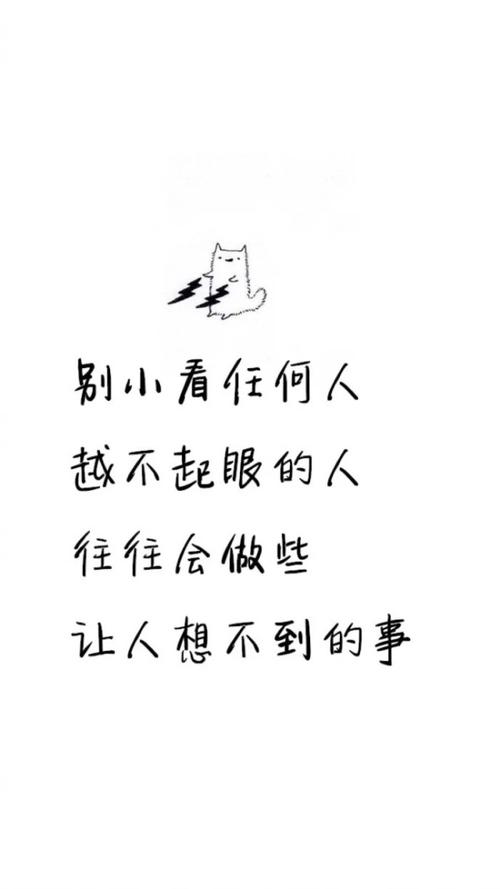 别小看任何人
越不起眼的人
往往会做些
让人想不到的事